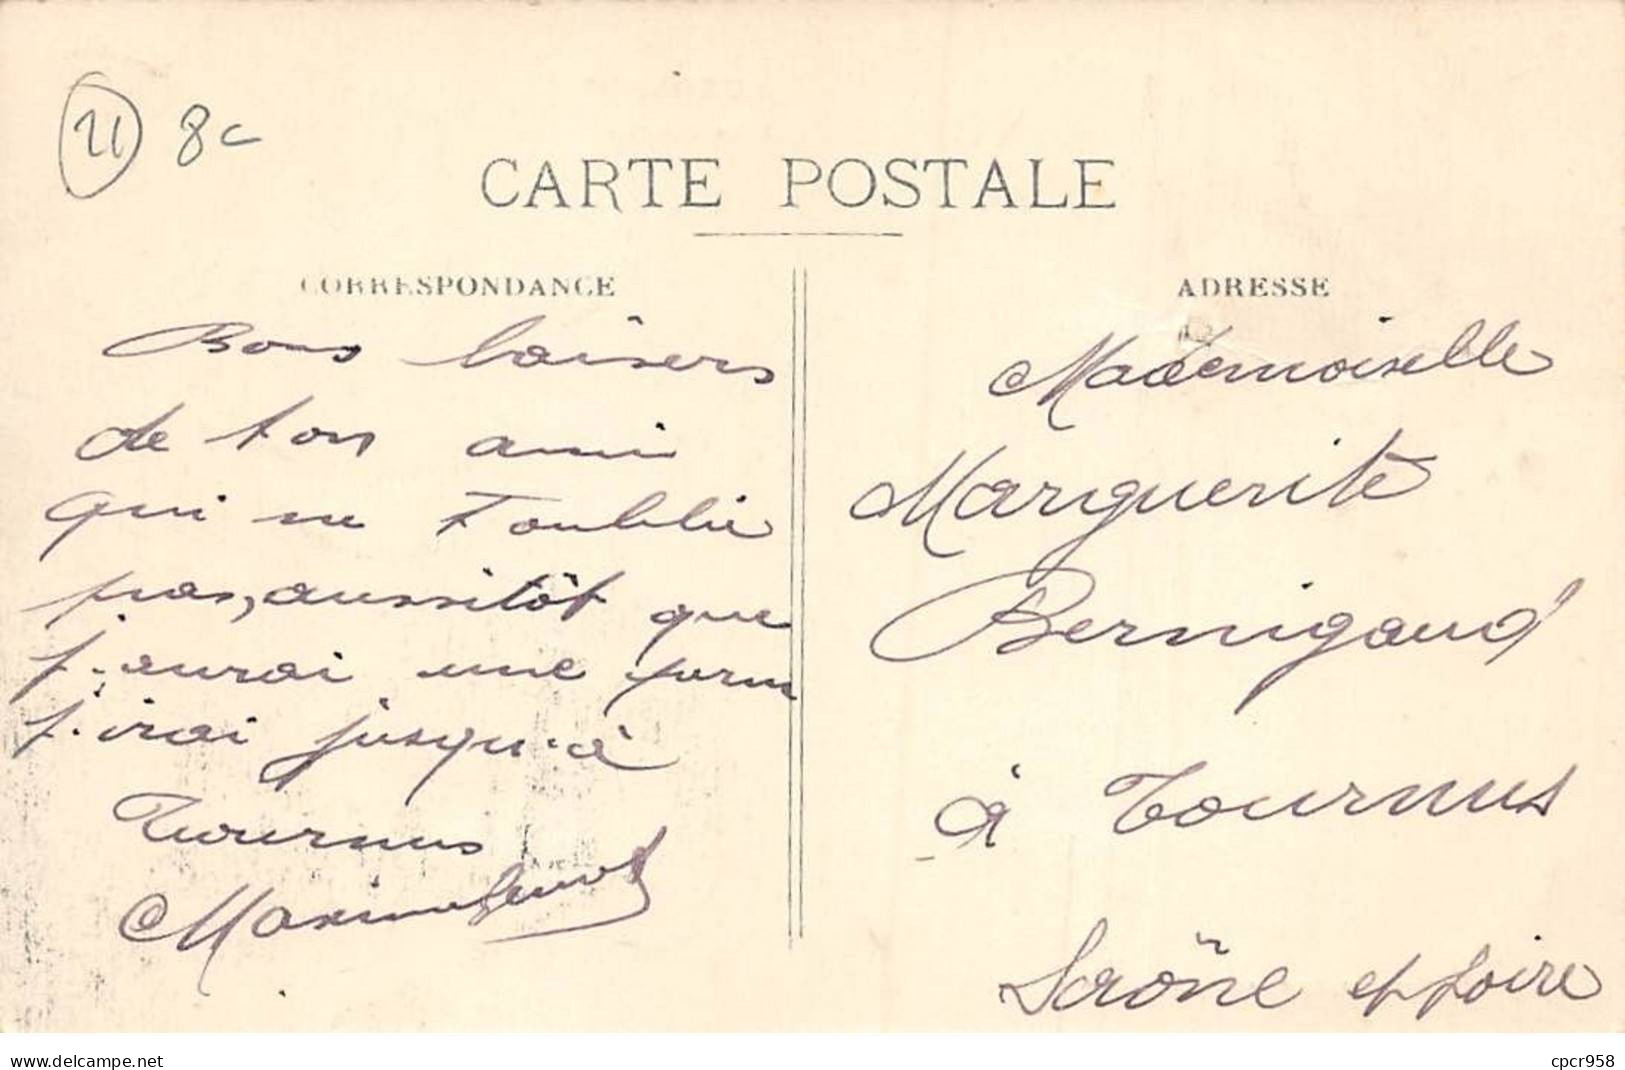 21 8c
CARTE POSTALE
CORRESPONDANCE
Bons baisers
de ton ami
qui ne t'oublie
pas, aussitôt que
j'aurai une perm
j'irai jusqu'à
Tournus
ADRESSE
Mademoiselle
Marguerite
Bernigaud
à Tournus
Saône et Loire
www.delcampe.net
cpcr958